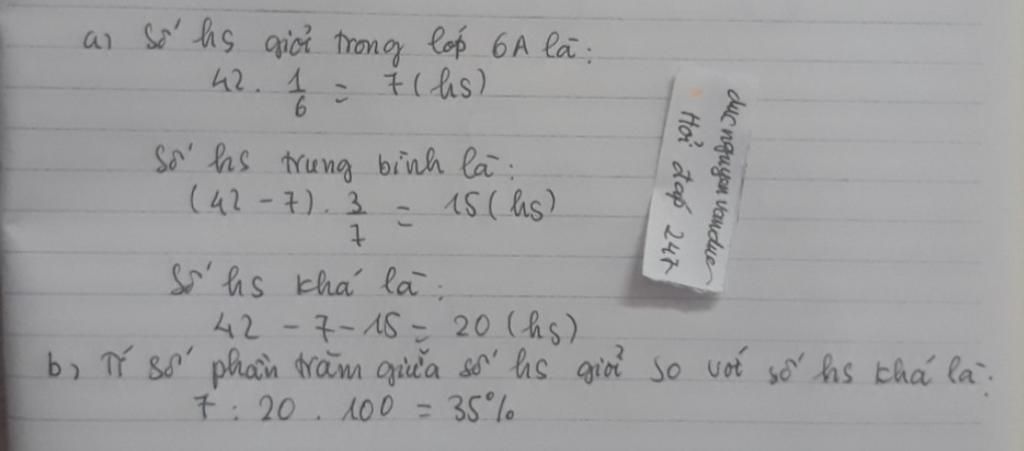 a) Số hs giỏi trong lớp 6A là:
42 . 1/6 = 7 (hs)
Số hs trung bình là:
(42 - 7) . 3/7 = 15 (hs)
Số hs khá là:
42 - 7 - 15 = 20 (hs)
b, Tỉ số phần trăm giữa số hs giỏi so với số hs khá là:
7 : 20 . 100 = 35%
ducnguyenvanduc
Hỏi đáp 247